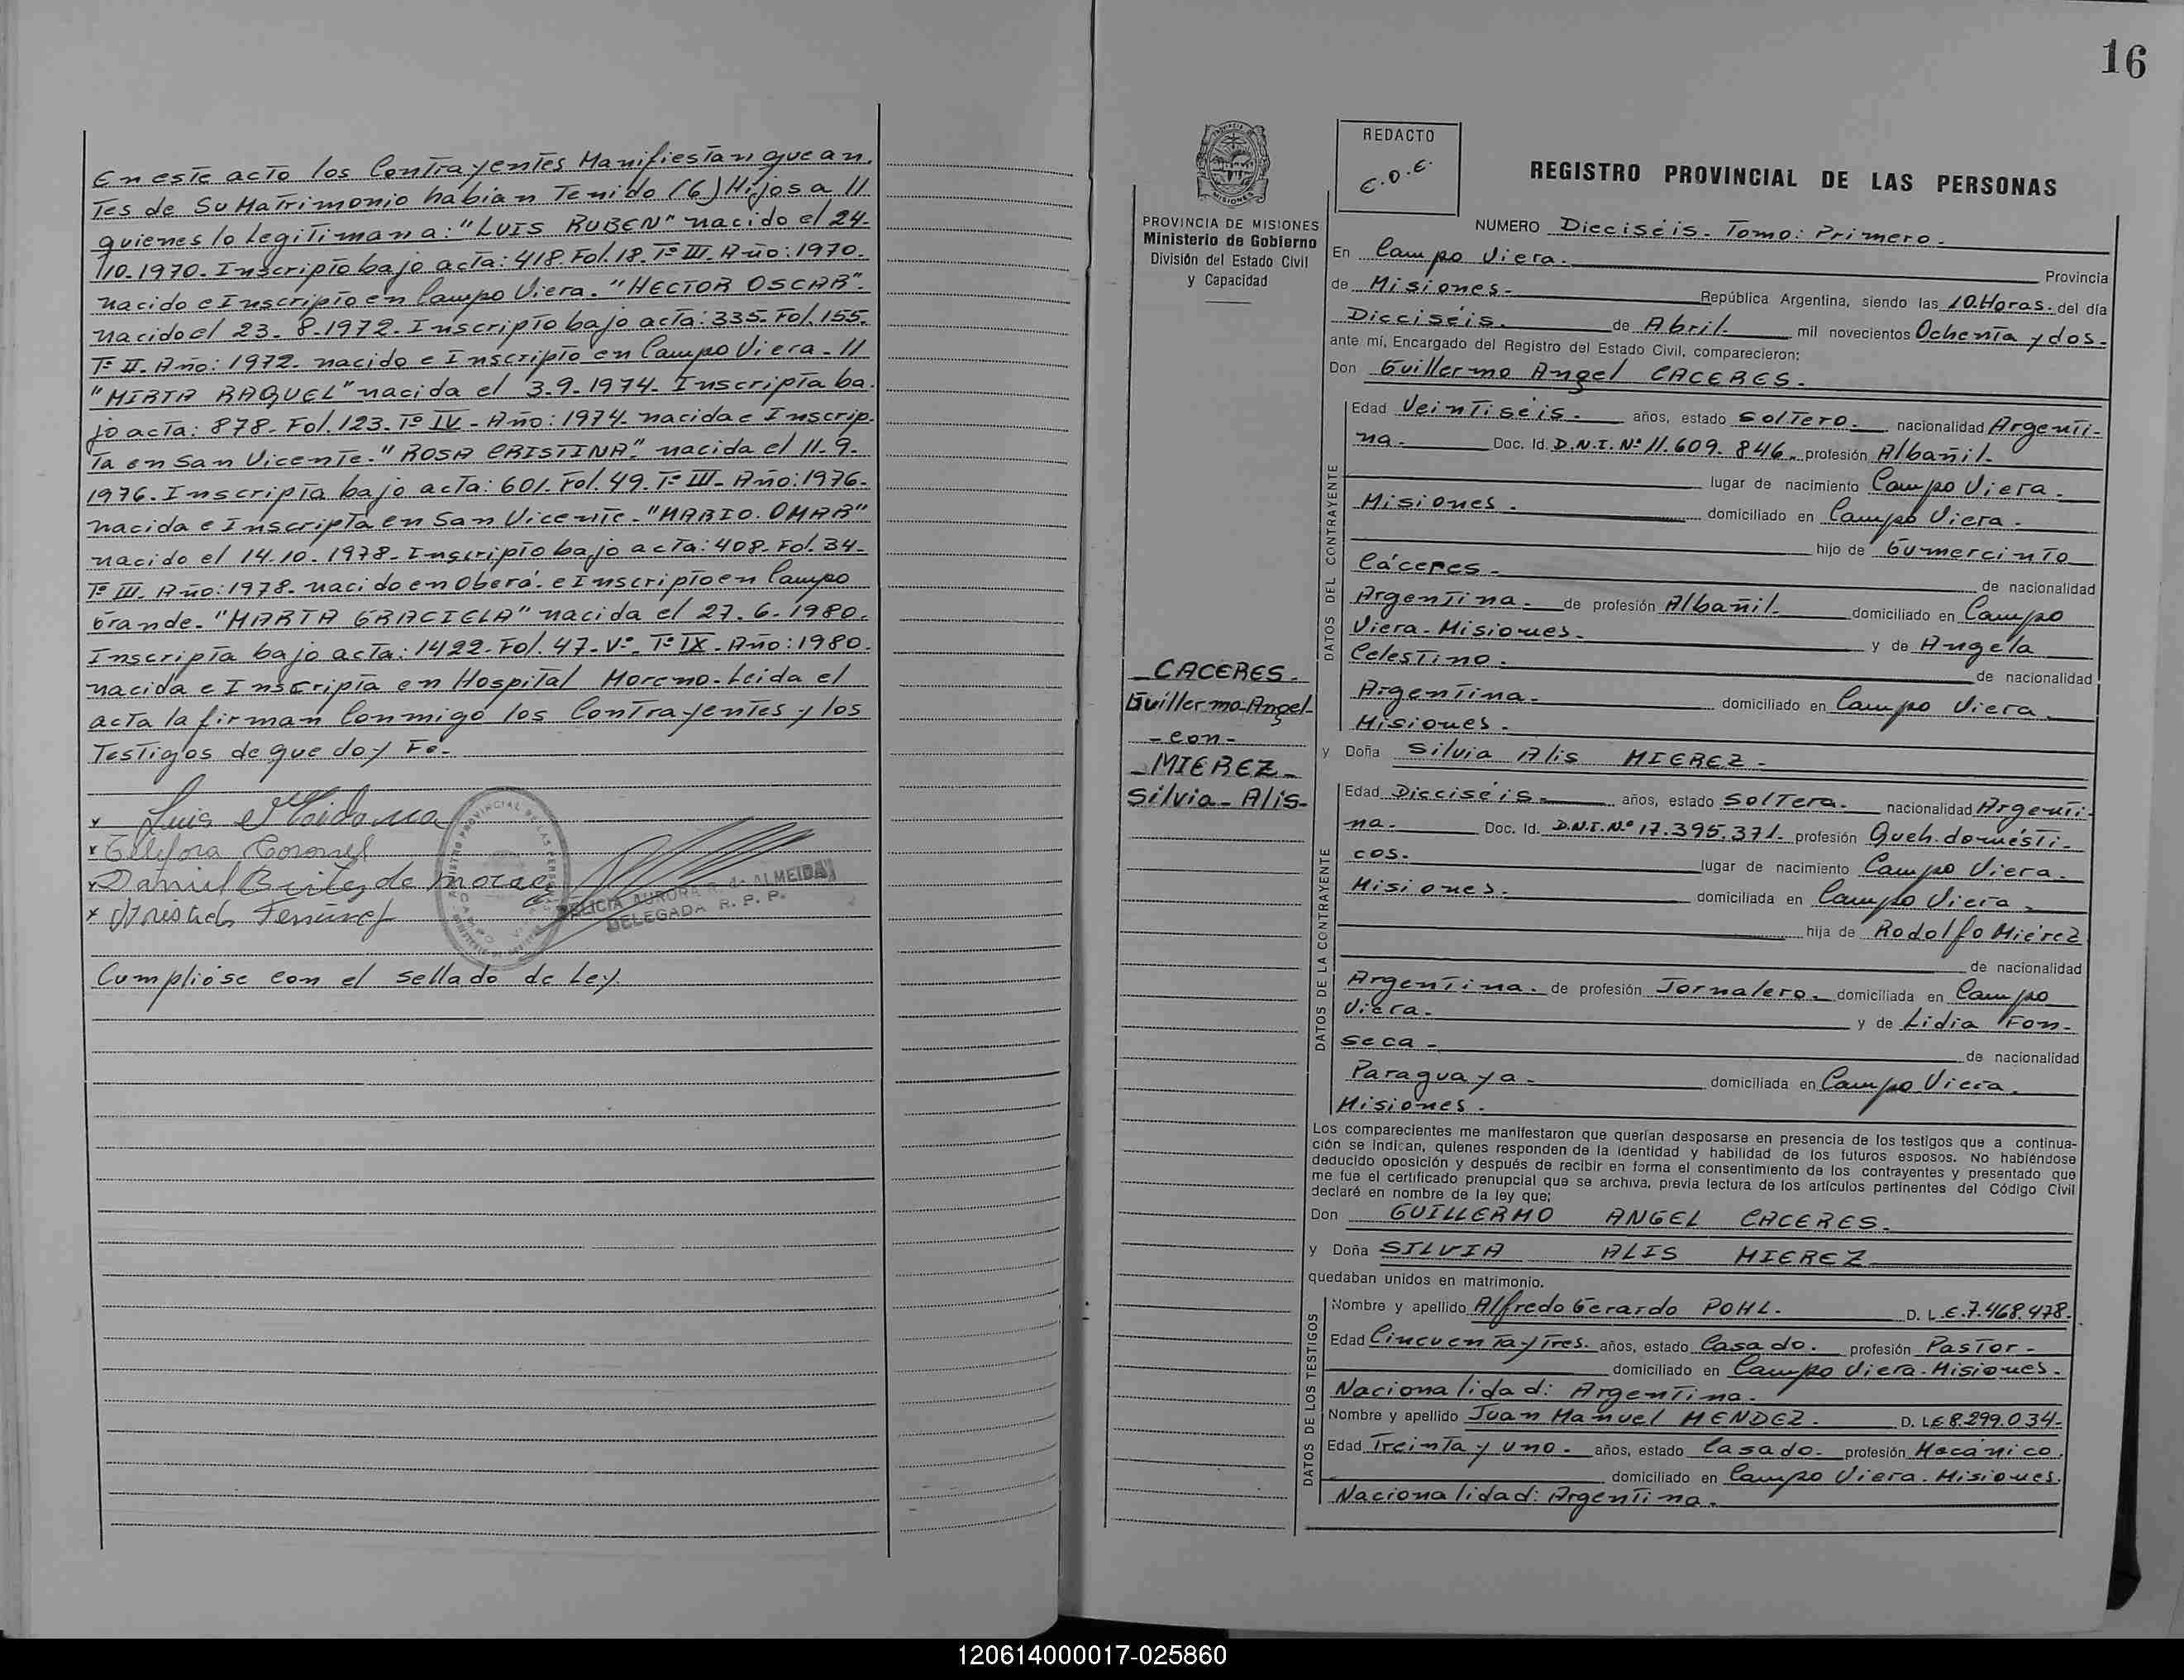 En este acto los Contrayentes Manifiestan que an.
tes de Su Matrimonio habian Tenido (6) Hijos a //
quienes lo legitiman a: "LUIS RUBEN" nacido el 24-
10-1970. Inscripto bajo acta: 418. Fol. 18. Tº III. Año: 1970.
nacido e Inscripto en Campo Viera. "HECTOR OSCAR".
nacido el 23. 8-1972. Inscripto bajo acta: 335. Fol. 155.
Tº II. Año: 1972. nacido e Inscripto en Campo Viera - //
"MIRTA RAQUEL" nacida el 3-9-1974- Inscripta ba.
jo acta: 878- Fol. 123. Tº IV - Año: 1974- nacida e Inscrip.
ta en San Vicente - "ROSA CRISTINA". nacida el 11-9-
1976. Inscripta bajo acta: 601. Fol. 49. Tº III - Año: 1976-
nacida e Inscripta en San Vicente - "MARIO. OMAR"
nacido el 14.10-1978- Inscripto bajo acta: 408- Fol. 34-
Tº III. Año: 1978. nacido en Oberá. e Inscripto en Campo
Grande - "MARTA GRACIELA" nacida el 27. 6-1980.
Inscripta bajo acta: 1422- Fol. 47- Vº- Tº IX - Año: 1980.
nacida e Inscripta en Hospital Moreno - Leida el
acta la firman Conmigo los Contrayentes y los
Testigos de que doy Fé.-
x Luis Maidana
x Telefora Coronel
x Daniel Britez de morae
x
FELICIA AURORA R. de ALMEIDA
DELEGADA R. P. P.
Cumplióse con el sellado de Ley.
16
REDACTO
E.D.E.
REGISTRO PROVINCIAL DE LAS PERSONAS
PROVINCIA DE MISIONES
Ministerio de Gobierno
División del Estado Civil
y Capacidad
NUMERO Dieciséis - Tomo: Primero -
En Campo Viera - Provincia
de Misiones - República Argentina, siendo las 10. Horas. del día
Dieciséis. de Abril. mil novecientos Ochenta y dos -
ante mí, Encargado del Registro del Estado Civil, comparecieron:
Don Guillermo Angel CACERES -
DATOS DEL CONTRAYENTE
Edad Veintiséis - años, estado Soltero - nacionalidad Argenti-
na - Doc. Id. D.N.I. Nº 11.609. 846. profesión Albañil -
lugar de nacimiento Campo Viera -
Misiones - domiciliado en Campo Viera -
hijo de Gumercinto
Cáceres - de nacionalidad
Argentina - de profesión Albañil - domiciliado en Campo
Viera - Misiones - y de Angela
Celestino - de nacionalidad
Argentina - domiciliado en Campo Viera
Misiones -
CACERES.
Guillermo Angel-
- con -
- MIEREZ -
Silvia - Alis-
y Doña Silvia Alis MIEREZ -
DATOS DE LA CONTRAYENTE
Edad Dieciséis - años, estado Soltera - nacionalidad Argenti-
na - Doc. Id. D.N.I. Nº 17.395.371. profesión Queh. domésti-
cos. lugar de nacimiento Campo Viera -
Misiones - domiciliada en Campo Viera -
hija de Rodolfo Miérez
de nacionalidad
Argentina - de profesión Jornalero - domiciliada en Campo
Viera - y de Lidia Fon-
seca - de nacionalidad
Paraguaya - domiciliada en Campo Viera.
Misiones -
Los comparecientes me manifestaron que querían desposarse en presencia de los testigos que a continua-
ción se indican, quienes responden de la identidad y habilidad de los futuros esposos. No habiéndose
deducido oposición y después de recibir en forma el consentimiento de los contrayentes y presentado que
me fue el certificado prenupcial que se archiva, previa lectura de los artículos pertinentes del Código Civil
declaré en nombre de la ley que;
Don GUILLERMO ANGEL CACERES -
y Doña SILVIA ALIS MIEREZ
quedaban unidos en matrimonio.
DATOS DE LOS TESTIGOS
Nombre y apellido Alfredo Gerardo POHL - D. L.E. 7.468.478.
Edad Cincuenta y Tres. años, estado Casado - profesión Pastor -
domiciliado en Campo Viera - Misiones -
Nacionalidad: Argentina -
Nombre y apellido Juan Manuel MENDEZ - D. LE 8.299.034-
Edad Treinta y uno - años, estado Casado - profesión Mecánico.
domiciliado en Campo Viera - Misiones.
Nacionalidad: Argentina -
120614000017-025860